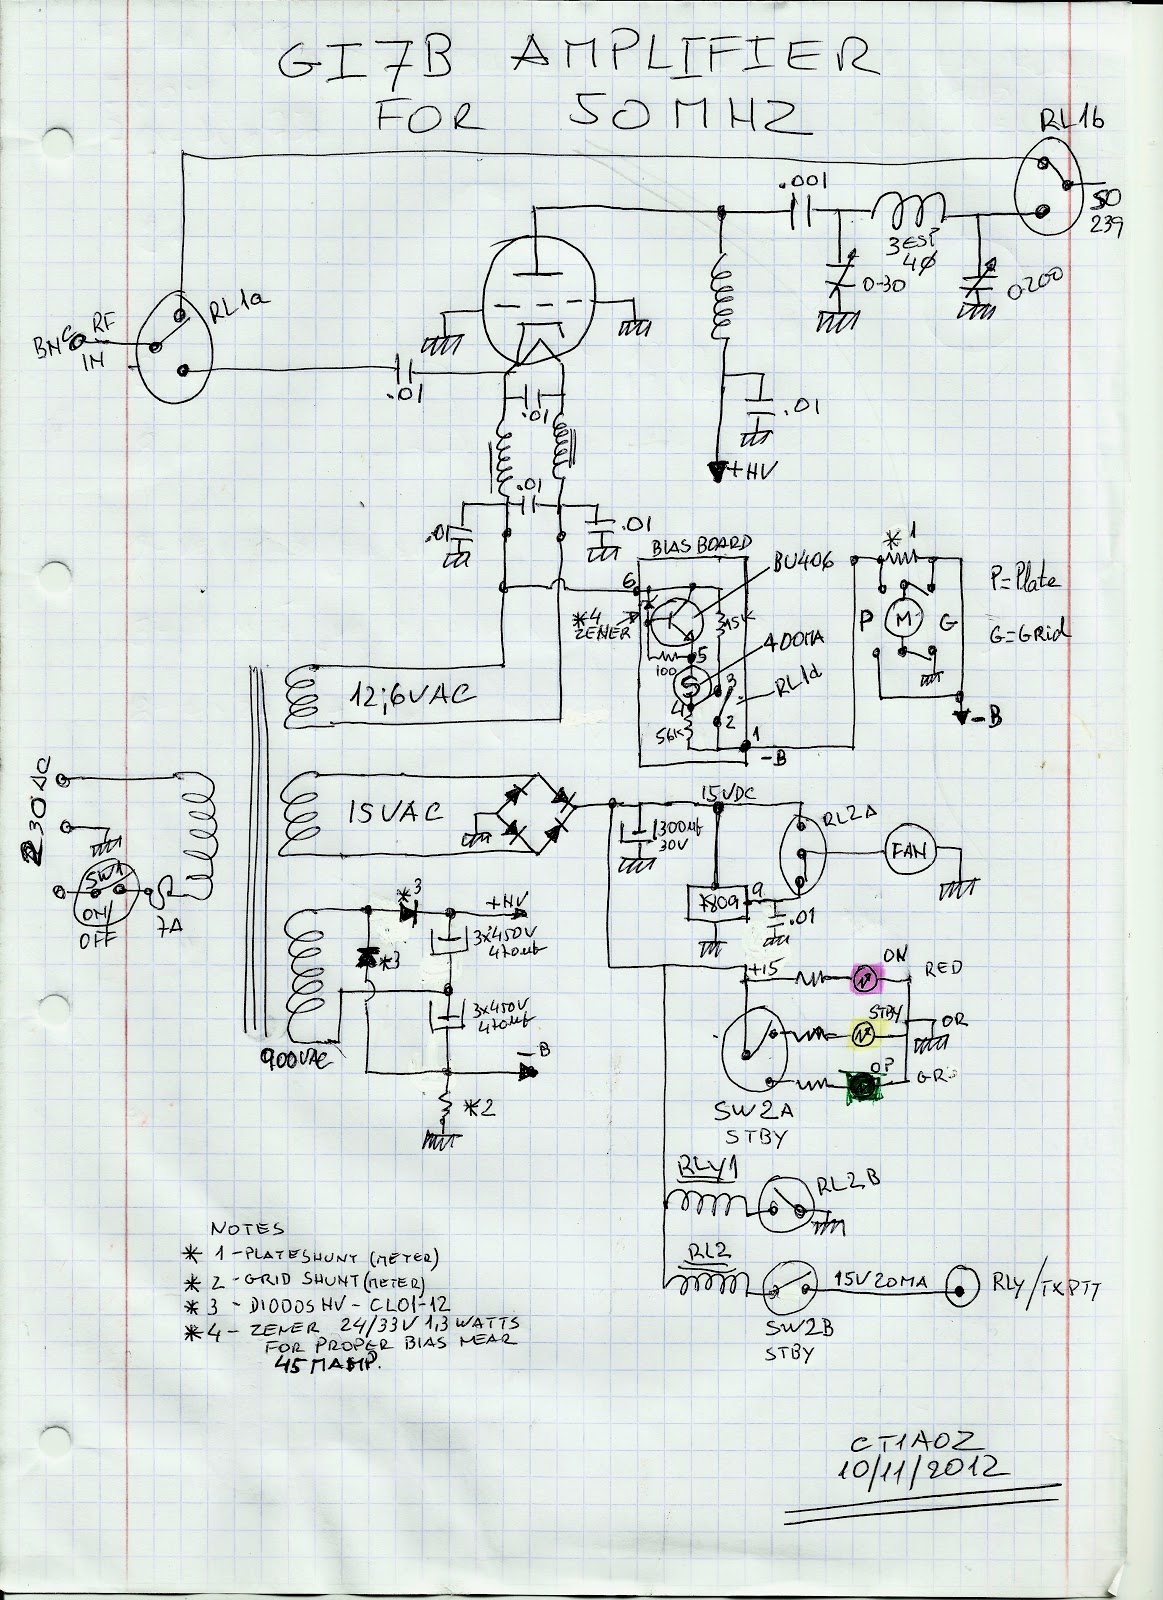 GI7B AMPLIFIER
FOR 50MHZ
RL1b
SO
239
.001
3ESP
4Ø
0-30
0-200
RL1a
BNC RF
IN
.01
.01
.01
+HV
.01
.01
.01
BIAS BOARD
BU406
6
*4
ZENER
15K
100
5
400MA
S
3
RL1d
4
2
56K
1
-B
* 1
P
M
G
P=Plate
G=GRid
-B
12,6VAC
230AC
SW1
ON/
OFF
7A
15VAC
15VDC
300µf
30V
RL2A
FAN
7809
9
.01
*3
+HV
3x450V
470µf
*3
3x450V
470µf
900VAC
-B
*2
+15
ON
RED
STBY
OR
OP
GR
SW2A
STBY
RLY1
RL2B
RL2
15V20MA
RLY/TXPTT
SW2B
STBY
NOTES
* 1 - PLATE SHUNT (METER)
* 2 - GRID SHUNT (METER)
* 3 - DIODOS HV - CL01-12
* 4 - ZENER 24/33V 1,3 WATTS
FOR PROPER BIAS NEAR
45MAMP.
CT1AOZ
10/11/2012